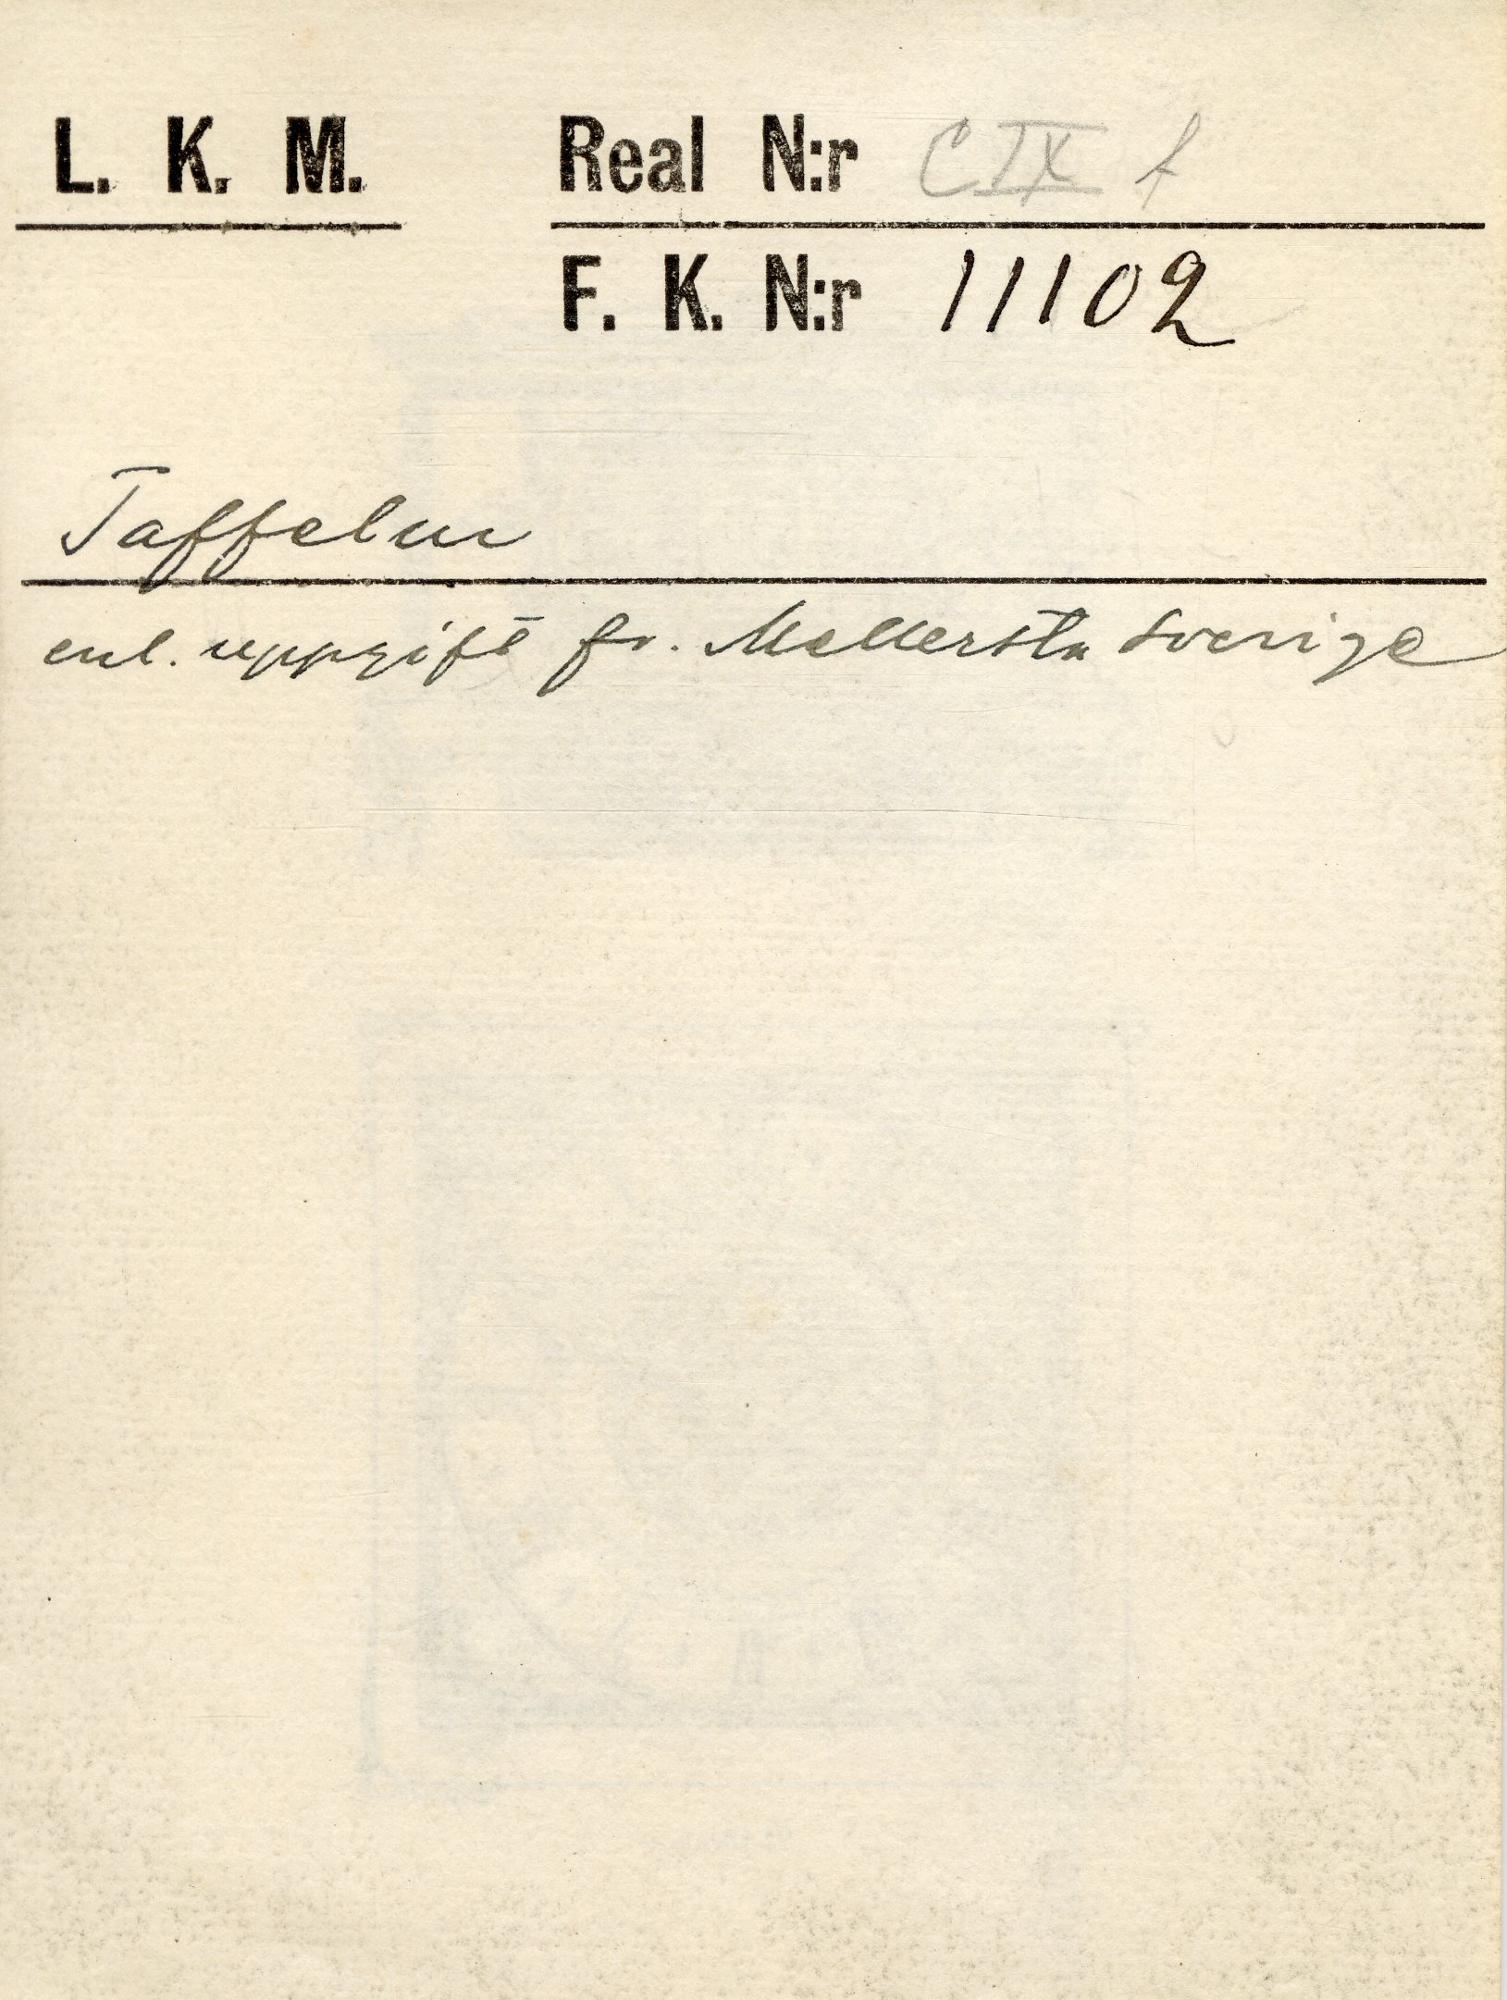 L. K. M. Real N:r C IX f
F. K. N:r 11102
Taffelur
enl. uppgift fr. Mellersta Sverige